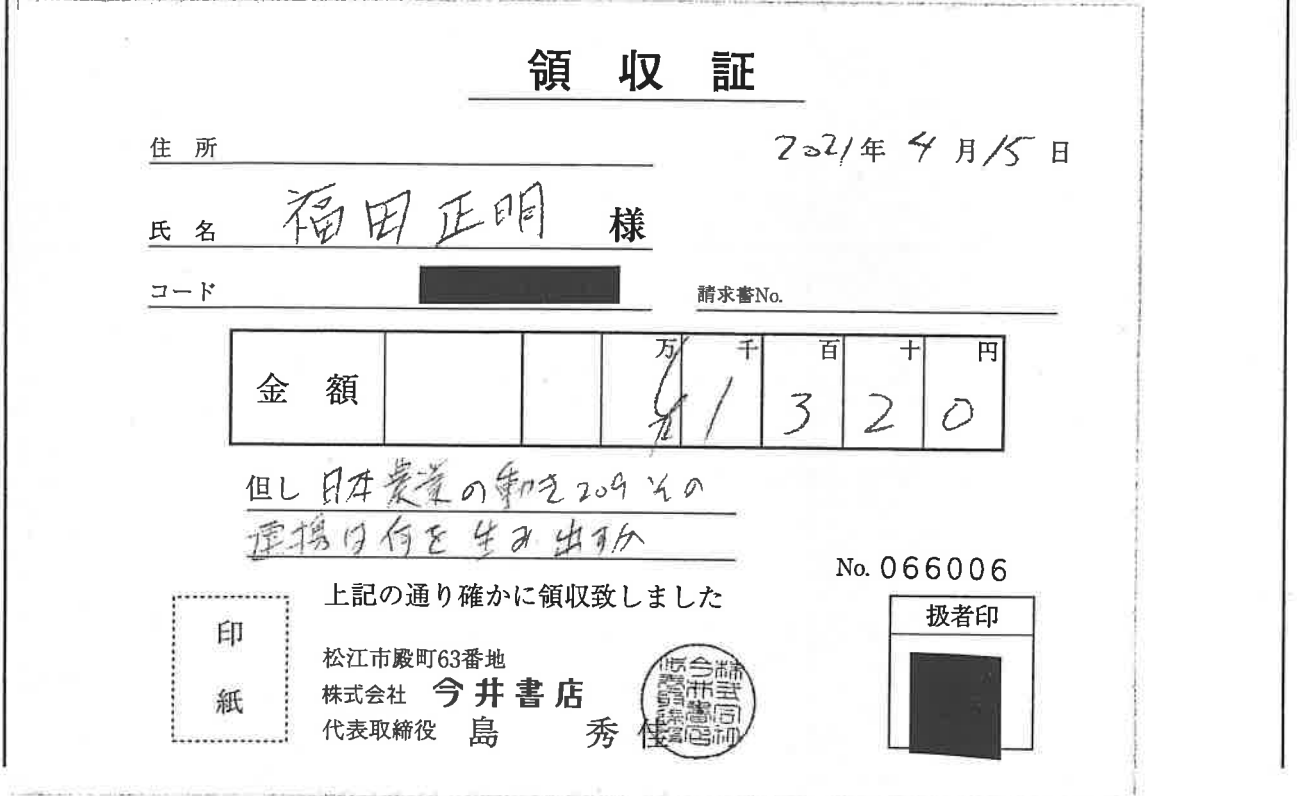 領収証
住所
2021年4月15日
氏名 福田正明 様
コード
請求書No.
金額 万 千 百 十 円
1 3 2 0
但し 日本農業の動き209 その
連携は何を生み出すか
No. 066006
上記の通り確かに領収致しました
印紙
扱者印
松江市殿町63番地
株式会社 今井書店
代表取締役 島 秀佳